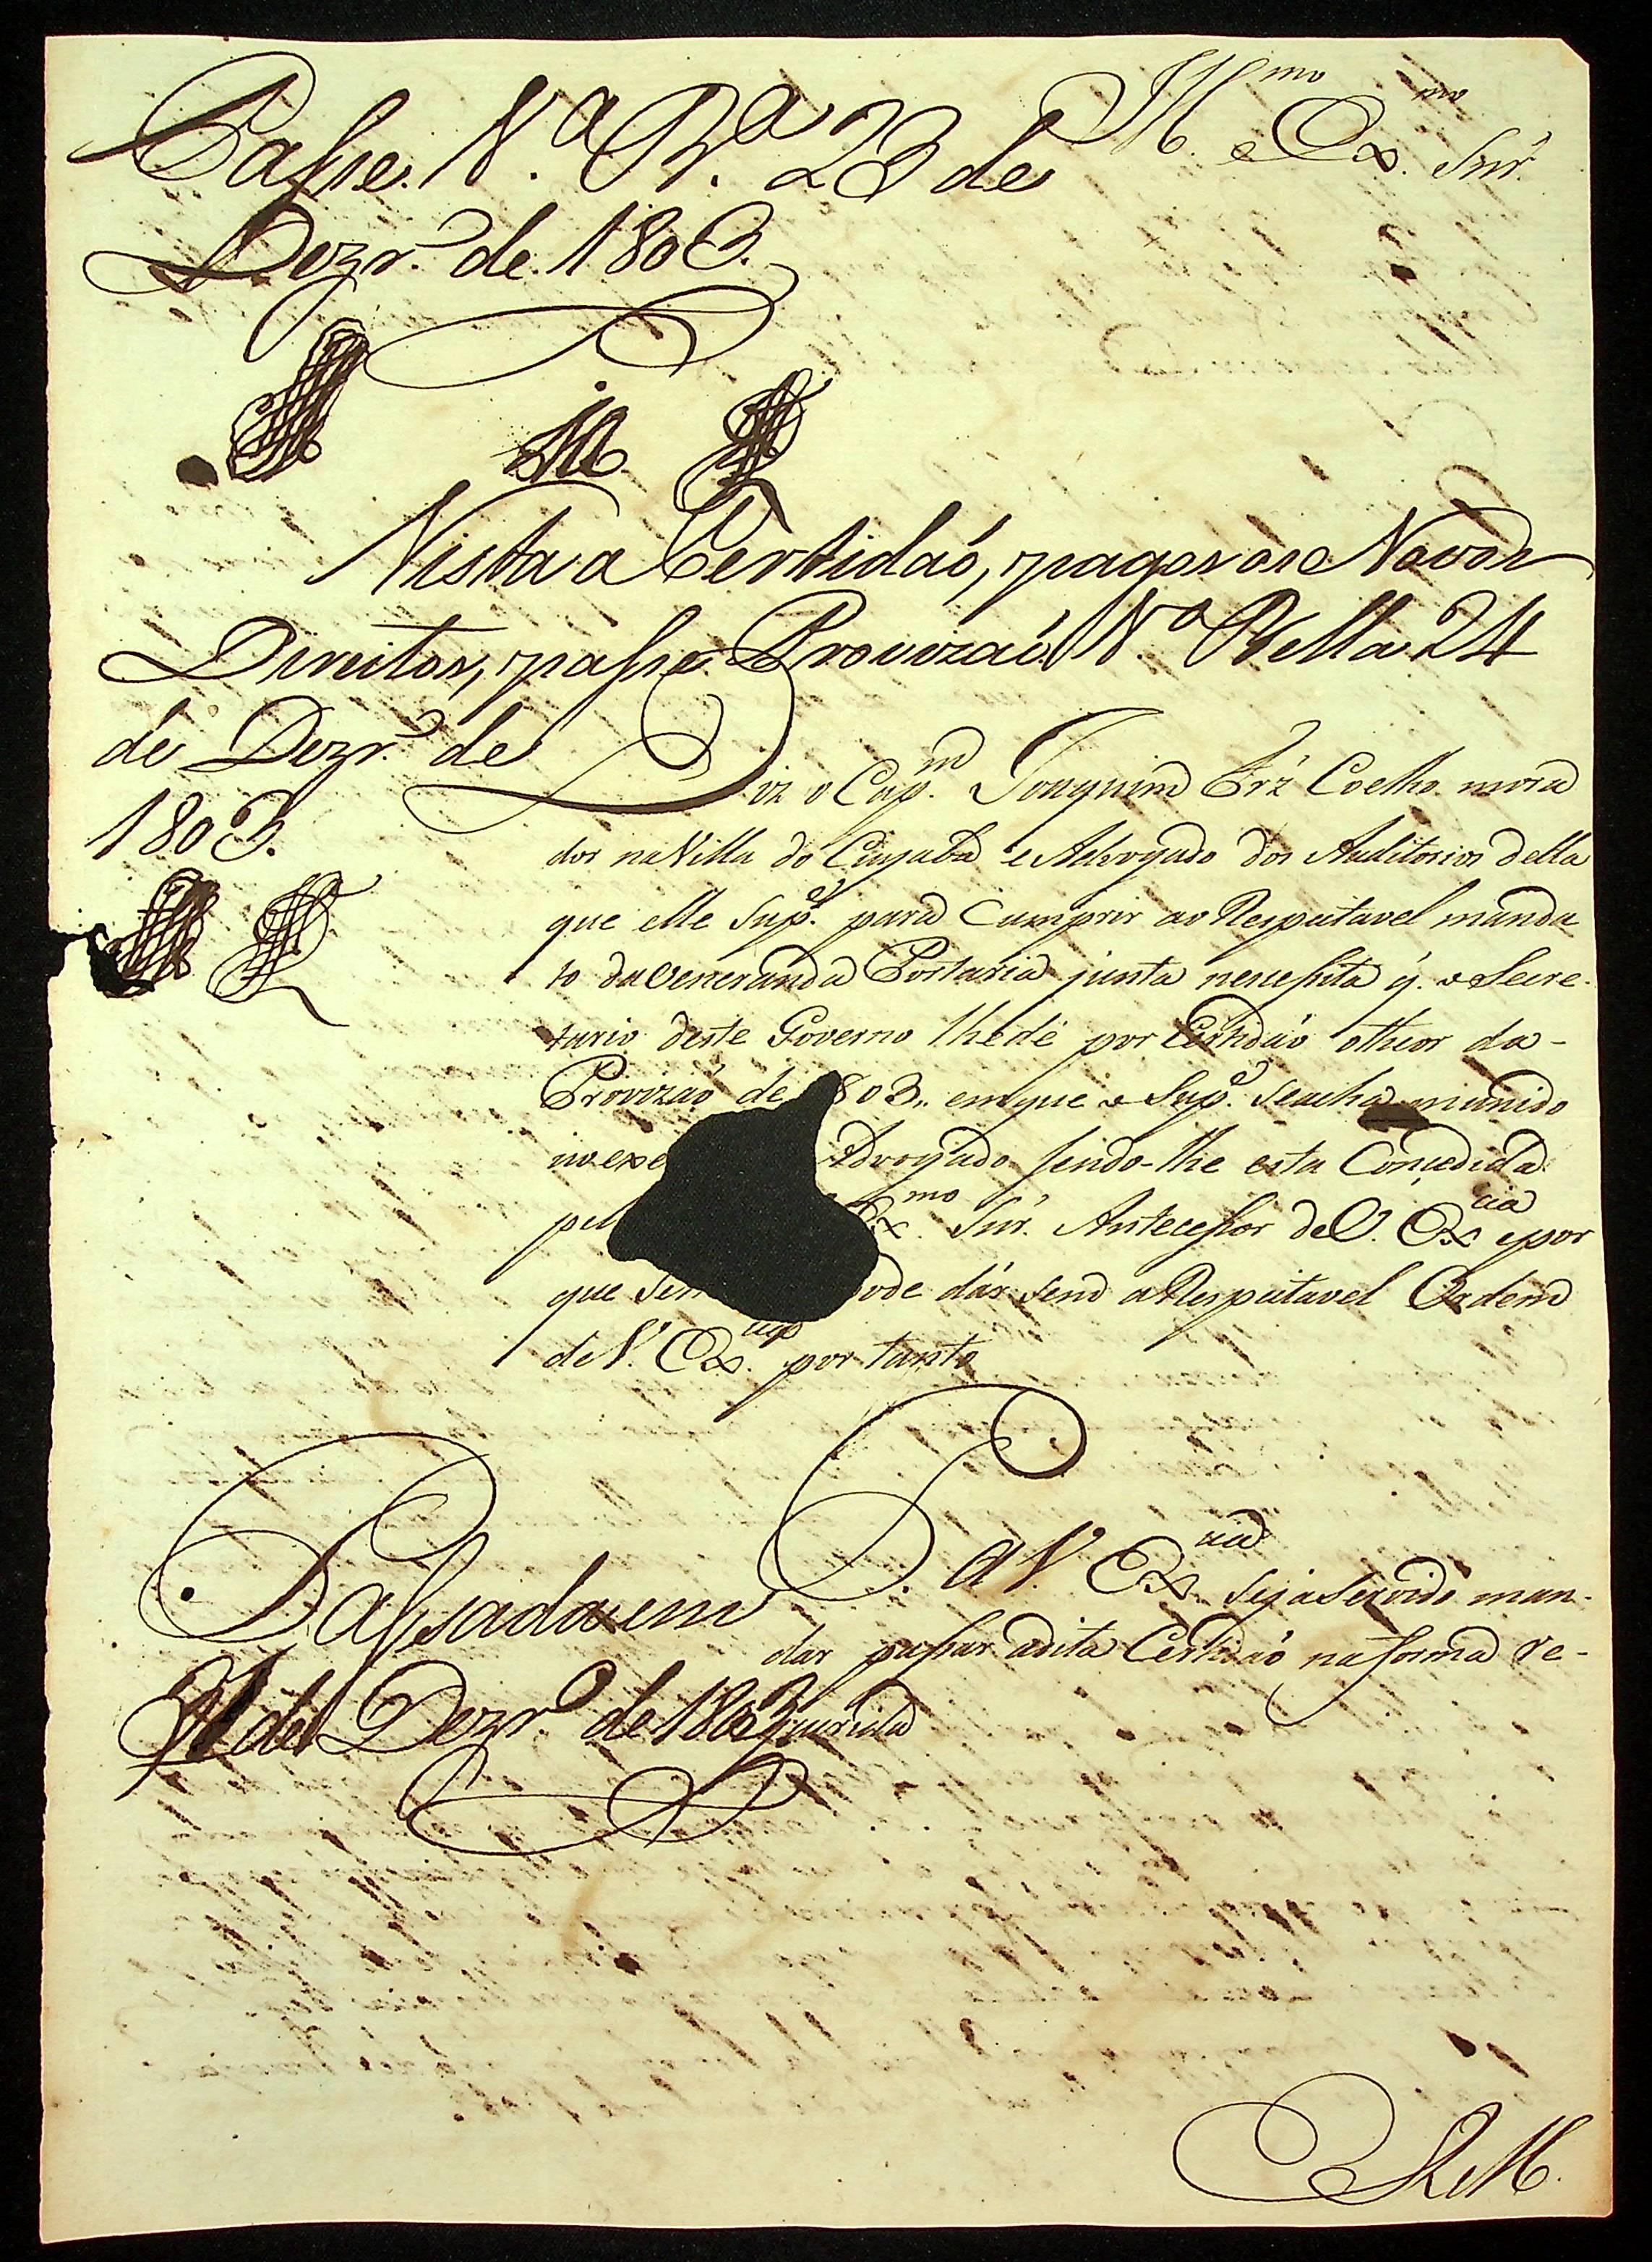 Passe. V.ª B.ª 23 de
Dezr.º de 1803.
Ill.mo e Ex.mo Snr.
Vista a Certidaó, pagos os Novos
Direitos, passe Provizaó V.ª Bella 24
de Dezr.º de
1803.
Diz o Cap.m Joaquim Frz Coelho mora
dor na Villa do Cuyaba e Advogado dos Auditorios della
que elle Sup.e para Cumprir ao Respeitavel manda
to da Veneranda Portaria junta nenessita q. o Secre-
tario deste Governo lhe dê por Certidaó otheor da-
Provizaó de 803,, em que o Sup.e se acha munido
no exe dvogado sendo-lhe esta Concedida
pel Ex.mo Snr. Antecessor de V. Ex.cia e por
que se ode dár sem a Respeitavel Ordem
de V. Ex.cia por tanto
P. a V. Ex.cia seja servido man-
dar passar a dita Certidaó na forma re-
querida
Passada em
de Dezr.º de 1803
E R M.